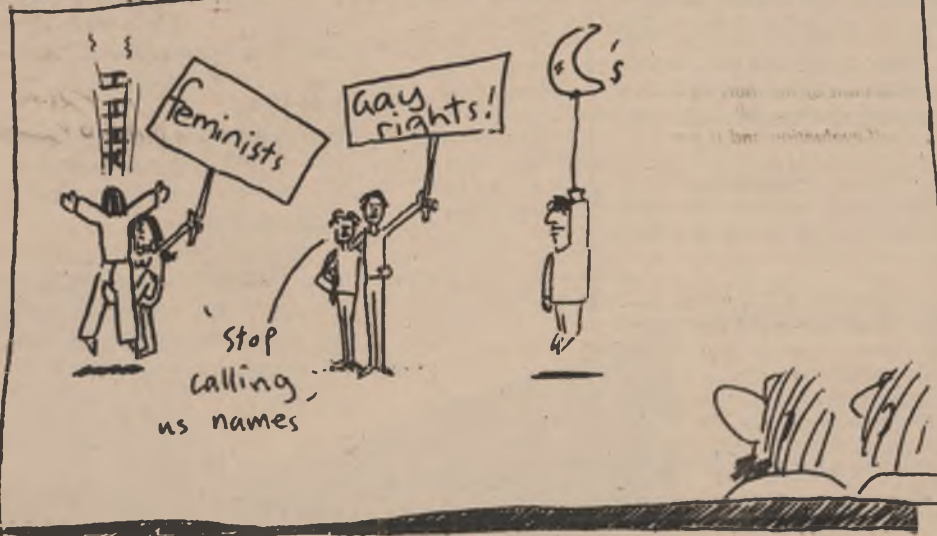 feminists
Gay
rights!
's
stop
calling
us names